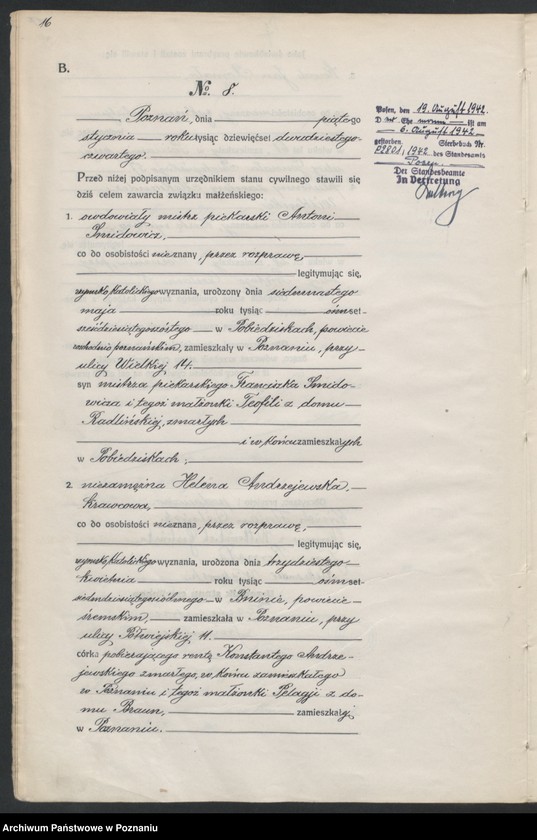 16
B.
No. 8.
Poznań, dnia piątego
stycznia roku tysiąc dziewięćset dwudziestego
czwartego.
Przed niżej podpisanym urzędnikiem stanu cywilnego stawili się
dziś celem zawarcia związku małżeńskiego:
1. owdowiały mistrz piekarski Antoni
Smidowicz,
co do osobistości nieznany, przez rozprawę,
legitymując się,
rzymsko katolickiego wyznania, urodzony dnia siedemnastego
maja roku tysiąc ośmset
sześćdziesiątegoszóstego w Pobiedziskach, powiecie
zachodnio poznańskim, zamieszkały w Poznaniu, przy
ulicy Wielkiej 14.
syn mistrza piekarskiego Franciszka Smido-
wicza i tegoż małżonki Teofili z domu
Radlińskiej, zmarłych
i w końcu zamieszkałych
w Pobiedziskach;
2. niezamężna Helena Andrzejewska,
krawcowa,
co do osobistości nieznana, przez rozprawę,
legitymując się,
rzymsko katolickiego wyznania, urodzona dnia trzydziestego
kwietnia roku tysiąc ośmset
siedmdziesiątegosiódmego w Bninie, powiecie
śremskim, zamieszkała w Poznaniu, przy
ulicy Półwiejskiej 11.
córka pobierającego rentę Konstantego Andrze-
jewskiego zmarłego, w końcu zamieszkałego
w Poznaniu i tegoż małżonki Pelagji z do-
mu Braun, zamieszkałej
w Poznaniu.
Posen, den 19. August 1942.
D Ehe ist am
6. August 1942
gestorben. Sterbebuch Nr.
1942 des Standesamts
Posen
Der Standesbeamte
In Vertretung
Archiwum Państwowe w Poznaniu